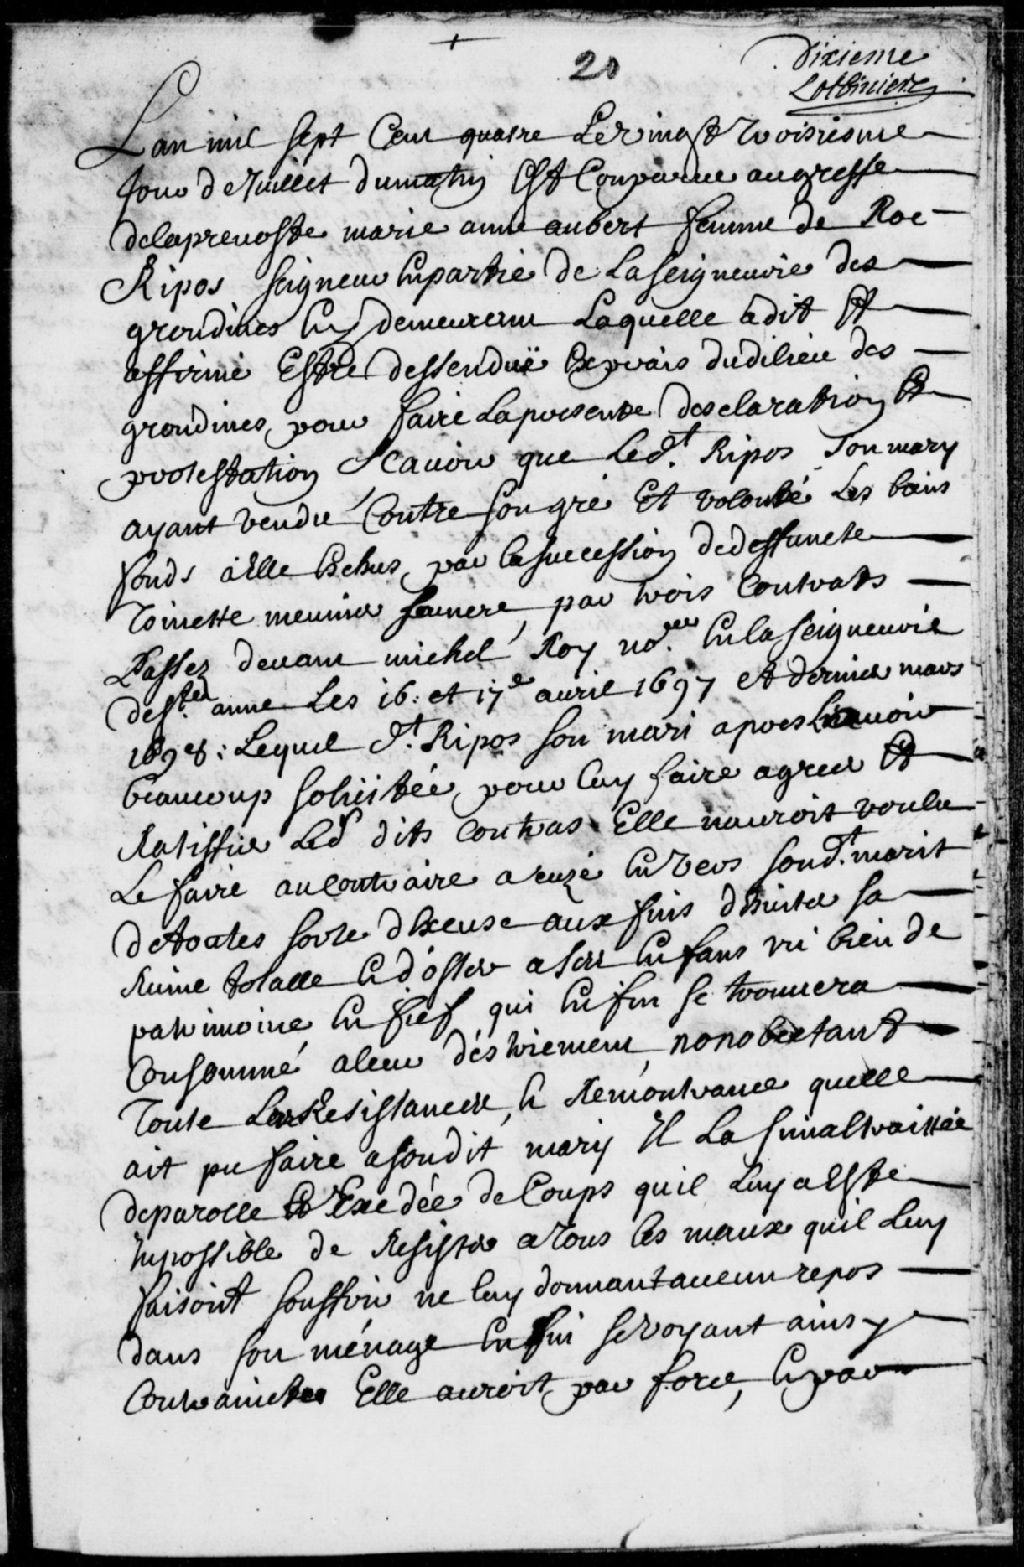 20
Dixieme
Lotbiniere
Lan mil sept Cent quatre Le vingt troisiesme
Jour de Juillet du matin Est Comparue au greffe
de la prevoste marie anne aubert femme de Roc
Ripos seigneur En partie de La seigneurie des
grondines En demeurent Laquelle a dit Et
affirmé Estre dessenduë Exprais dudi lieu des
grondines, pour faire La presente desclaration Et
protestation Scavoir que Led.t Ripos Son mary
ayant vendu Contre son gré Et volonté Les biens
fonds a Elle Echus, par la succession de deffuncte
Toinette meunier sa mere, par trois Contrats
Passez devant michel Roy no.re En la seigneurie
de s.te anne Les 16: et 17e avril 1697 et dernier mars
1698: Lequel d.t Ripos son mari apres Lavoir
beaucoup solicitée pour Luy faire agreer Et
Ratiffier Les dits contras Elle nauroit voulu
Le faire au contraire a euzé En vers sond.t marit
de toutes sorte dExcuse aux fins dEviter sa
Ruine totalle Et d'oster a ses Enfans un bien de
patrimoine En fief qui En fin se trouvera
Consommé a leur détriement, nonobstant
Toute Les Resistances, Et Remontrance quelle
ait pu faire a sondit mary Il La si maltraittée
de parolle Et Exedée de Coups quil Luy a Este
Impossible de Resister a tous les maux quil Luy
faisoit souffrir ne luy donnant aucun repos
dans son ménage En fin se voyant ainsy
Contrainte Elle auroit par force, Et par